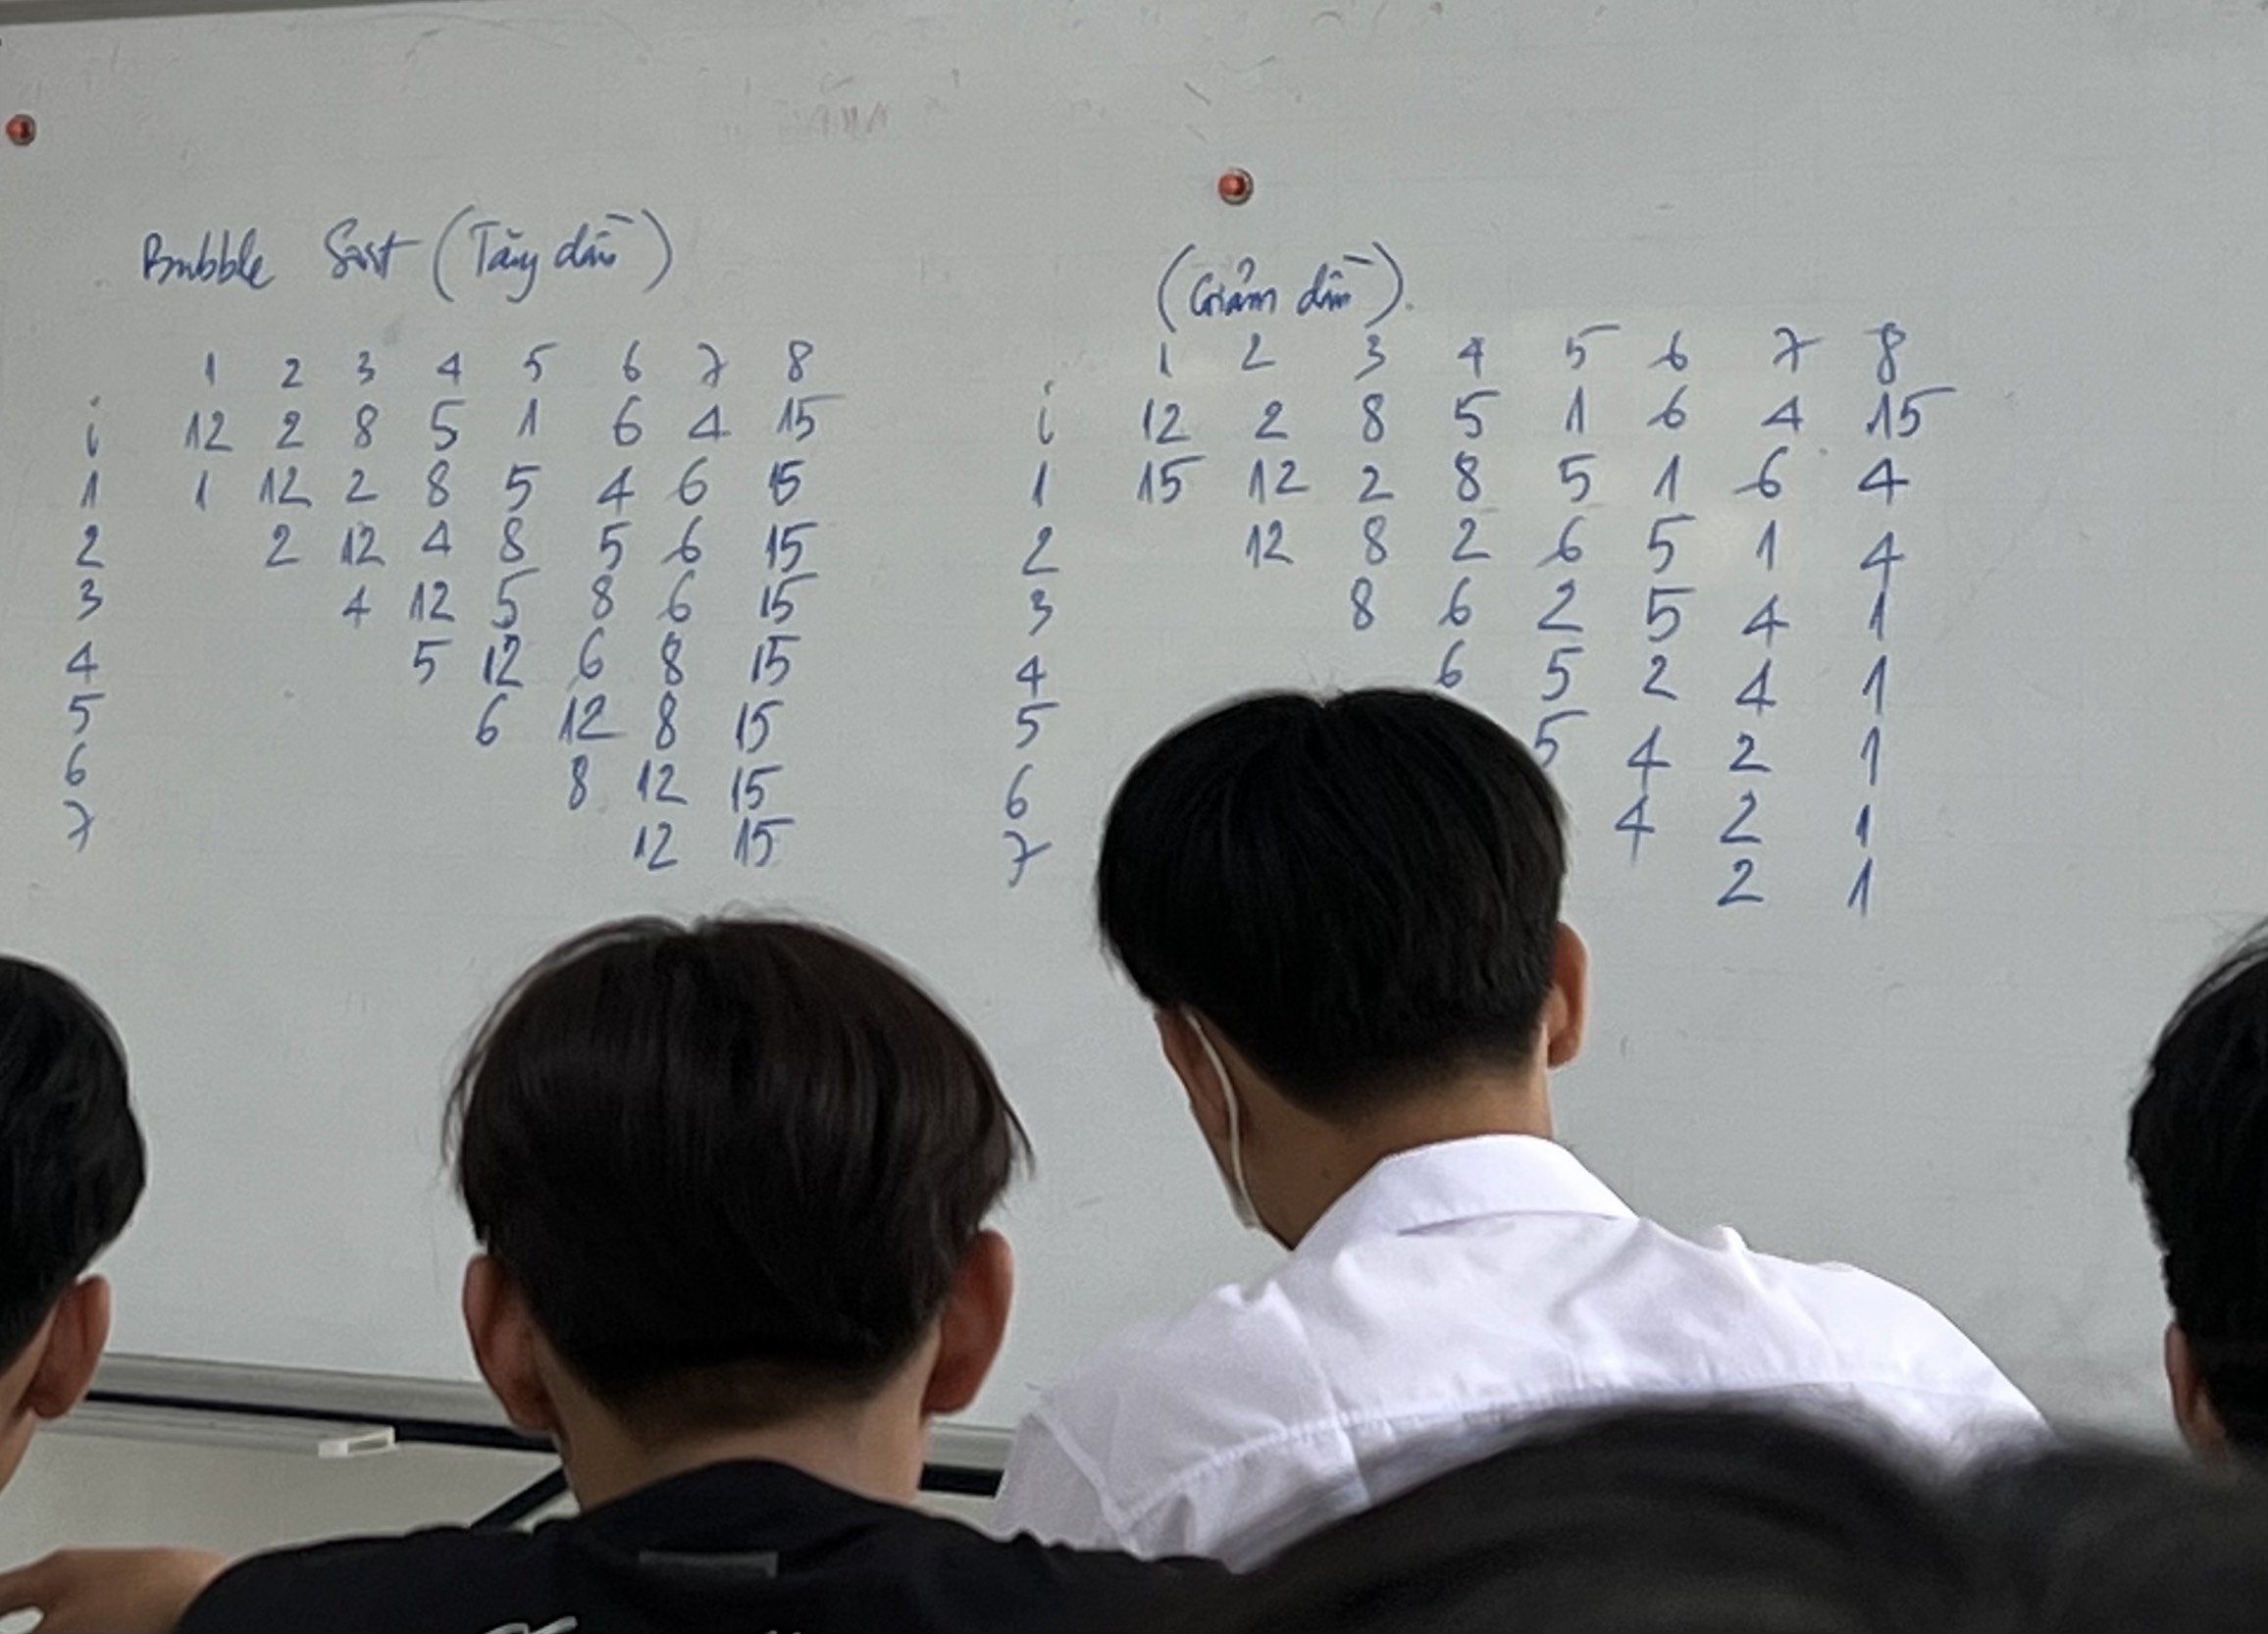 Bubble Sort (Tăng dần)
1 2 3 4 5 6 7 8
i 12 2 8 5 1 6 4 15
1 1 12 2 8 5 4 6 15
2 2 12 4 8 5 6 15
3 4 12 5 8 6 15
4 5 12 6 8 15
5 6 12 8 15
6 8 12 15
7 12 15
(Giảm dần).
1 2 3 4 5 6 7 8
i 12 2 8 5 1 6 4 15
1 15 12 2 8 5 1 6 4
2 12 8 2 6 5 1 4
3 8 6 2 5 4 1
4 6 5 2 4 1
5 5 4 2 1
6 4 2 1
7 2 1